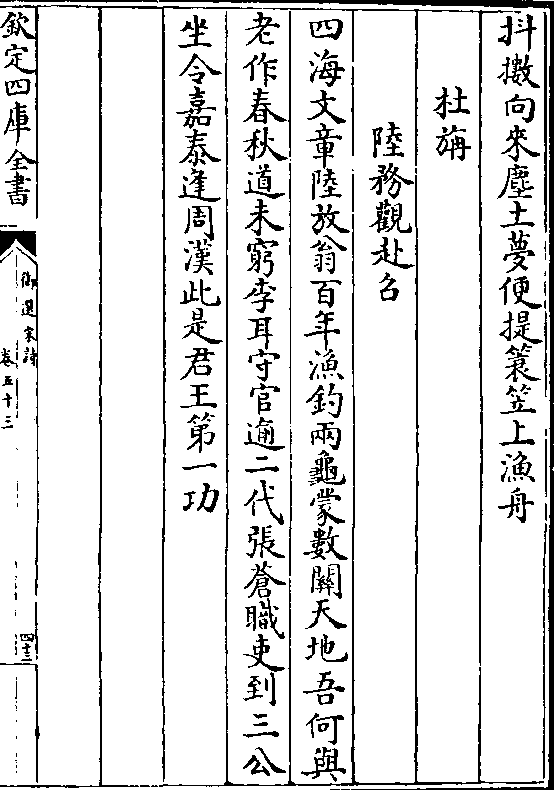 抖擻向來塵土夢便提簑笠上漁舟
杜旃
陸務觀赴召
四海文章陸放翁百年漁釣兩龜蒙數關天地吾何與
老作春秋道未窮李耳守官逾二代張蒼職吏到三公
坐令嘉泰逢周漢此是君王第一功
欽定四庫全書
御選宋詩
卷五十三
四十二